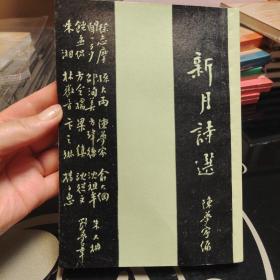 新月詩選
陳夢家編
徐志摩
聞一多
饒孟侃
朱湘
孫大雨
邵洵美
方令孺
林徽音
陳夢家
方瑋德
梁鎮
卞之琳
俞大綱
沈祖牟
沈從文
楊子惠
朱大枏
劉夢葦